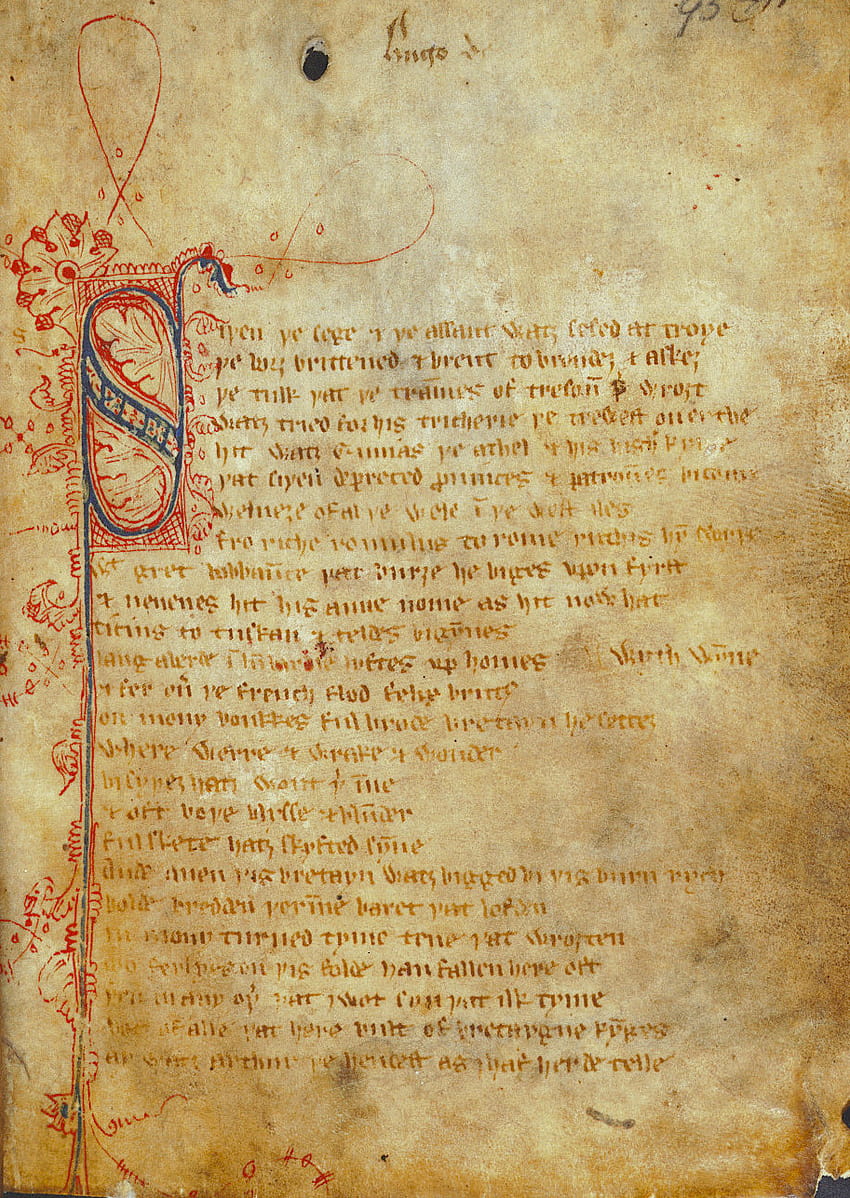 Hugo de
Siþen þe sege & þe assaut watȝ sesed at troye
þe borȝ brittened & brent to brondeȝ & askeȝ
þe tulk þat þe tram̄es of tresoun̄ þ̉ wroȝt
watȝ tried for his tricherie þe trewest on erthe
hit watȝ Ennias þe athel & his highe kynde
þat siþen depreced prouinces & patroūes bicome
welneȝe of al þe wele ī þe west iles
fro riche romulus to rome ricchis hym̄ swyþe
wt gret bobbaūce þat burȝe he biges vpon fyrst
& neuenes hit his aune nome as hit now hat
ticius to tuskan & teldes bigȳnes
langaberde ī lūbardie lyftes vp homes with wȳne
& fer oủ þe french flod felix brutus
on mony bonkkes ful brode bretayn he setteȝ
where werre & wrake & wonder
bi syþeȝ hatȝ wont þ̉ īne
& oft boþe blysse & blūder
ful skete hatȝ skyfted sȳne
Ande quen þis bretayn watȝ bigged bi þis burn rych
bolde bredden þerīne baret þat lofden
in mony turned tyme tene þat wroȝten
mo ferlyes on þis folde han fallen here oft
þen in any oþ̉ þat I wot syn þat ilk tyme
bot of alle þat here bult of bretaygne kȳges
ay watȝ arthur þe hendest as I haf herde telle